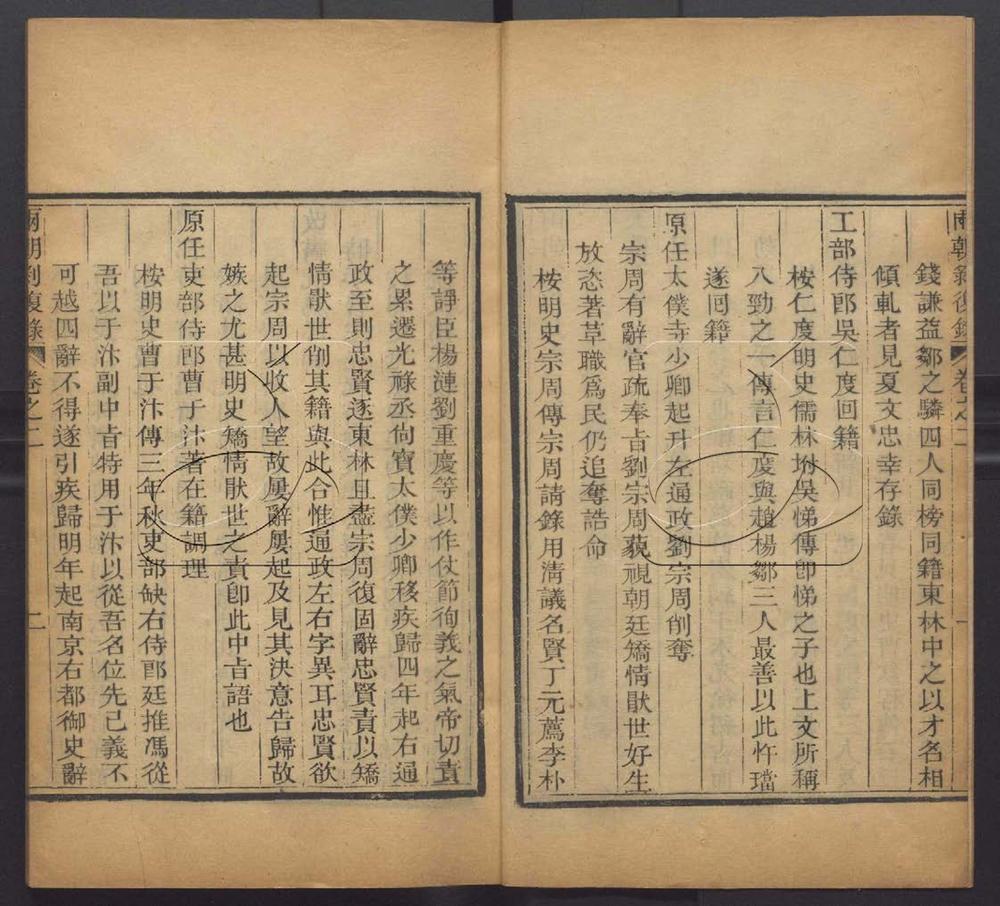 兩朝剝復錄 卷之二 一
錢謙益鄒之驎四人同榜同籍東林中之以才名相
傾軋者見夏文忠幸存錄
工部侍郎吳仁度回籍
桉仁度明史儒林坿吳悌傳卽悌之子也上文所稱
八勁之一傳言仁度與趙楊鄒三人最善以此忤璫
遂回籍
原任太僕寺少卿起升左通政劉宗周削奪
宗周有辭官疏奉旨劉宗周藐視朝廷矯情猒世好生
放恣著革職爲民仍追奪誥命
桉明史宗周傳宗周請錄用淸議名賢丁元薦李朴
等諍臣楊漣劉重慶等以作仗節徇義之氣帝切責
之累遷光祿丞尙寶太僕少卿移疾歸四年起右通
政至則忠賢逐東林且盡宗周復固辭忠賢責以矯
情猒世削其籍與此合惟通政左右字異耳忠賢欲
起宗周以收人望故屢辭屢起及見其決意告歸故
嫉之尤甚明史矯情猒世之責卽此中旨語也
原任吏部侍郎曹于汴著在籍調理
桉明史曹于汴傳三年秋吏部缺右侍郎廷推馮從
吾以于汴副中旨特用于汴以從吾名位先己義不
可越四辭不得遂引疾歸明年起南京右都御史辭
兩朝剝復錄 卷之二 二